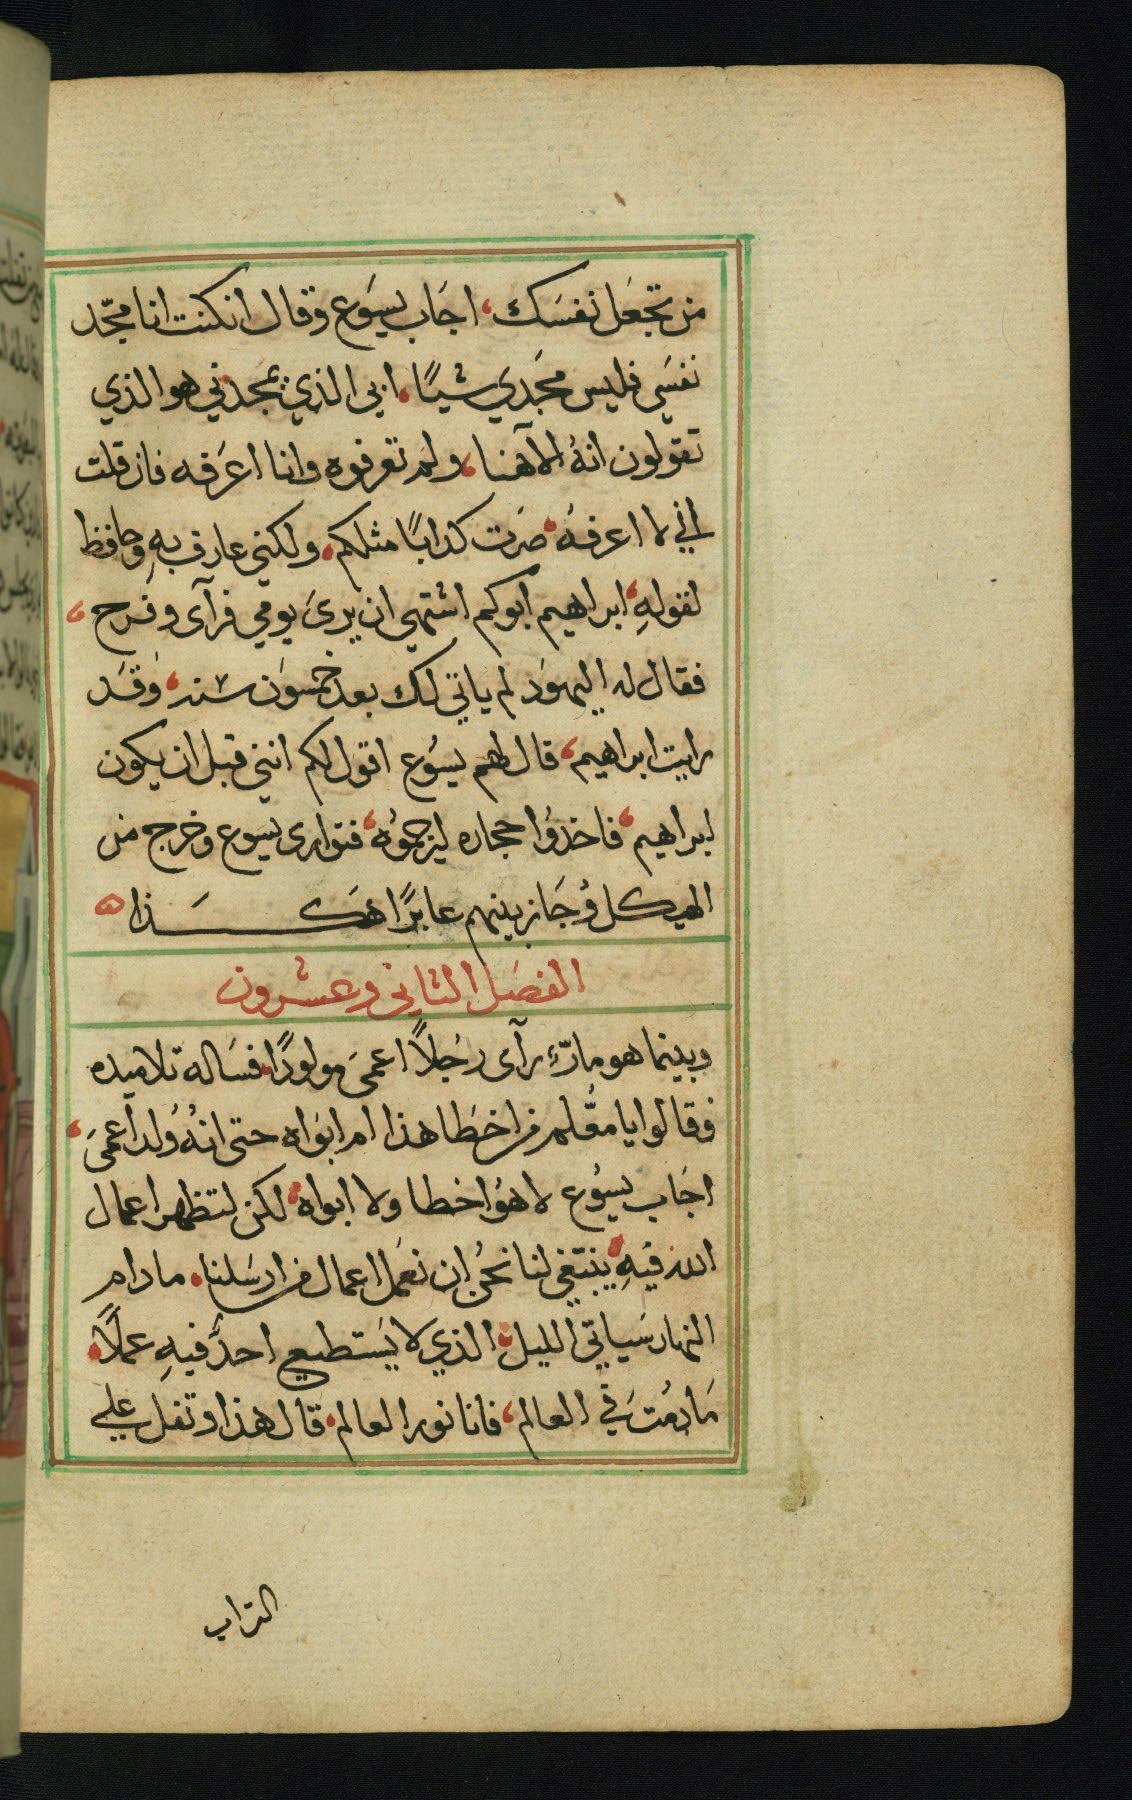 من تجعَل نفسَك، اجَاب يسَوع وقال ان كنت انا مجّد
نفسَي فليس مجَدي شيًا، ابي الذي يمجدني هو الذي
تقولون انهُ الآهنا، ولم تعرفوه وانا اعرَفه فان قلت
اني لا اعرفهُ، صَرت كدابًا مثلكم، ولكني عارف بهِ وحافظ
لقولهِ، ابراهيم ابوكم اشتهي ان يرىَ يومي فرآى وفَرح،
فقال له اليهوَد لم ياتي لك بعد خمسوَن سنه، وَقَد
رايت ابراهيم، قال لهم يسُوع اقول لكم انني قبل ان يكون
ابراهيم، فاخدُوا حجاره ليرجموُه، فتوارى يسوع وخرج من
الهيكل وُجَاز بينهم عابرًا هَكَذا ۞
الفصَل الثاني وعشرون
وبينما هو مارّ رآى رجُلاً اعمىَ مولودًا، فسَاله تلاميده
وقالوا يا معُلم من اخطَا هذا ام ابوَاه حتى انهُ وُلد اعمىَ،
اجَاب يسوُع لا هوُ اخطا ولا ابواه، لكن لتظهر اعمال
الله فيهِ، ينبتغي لنا نحنُ ان نعَمل اعمال من ارسَلنا، مادام
النهار سَياتي الليل، الذي لا يَستطيع احدٌ فيهِ عملاً،
مَا دمُتَ في العالم، فانا نور العالم، قال هذا وتفل علي
التراب